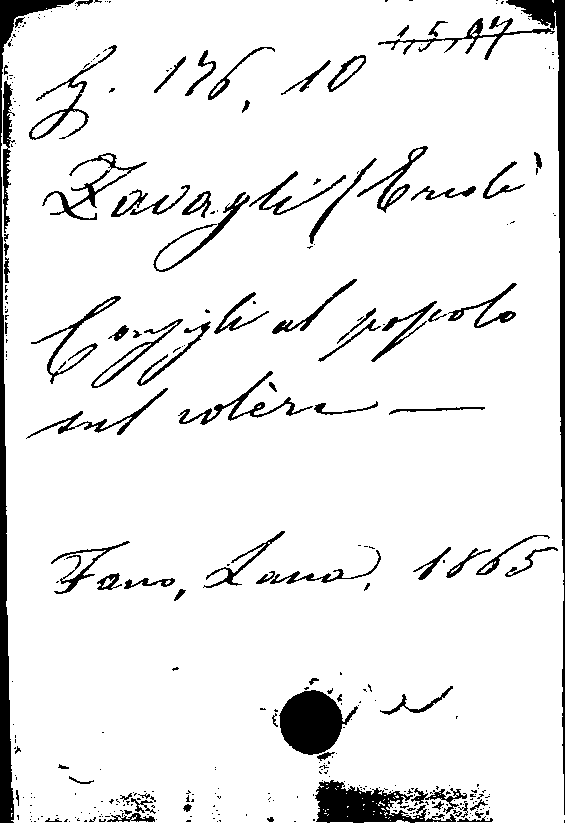 1,5,97
G. 176, 10
Zavagli / Ercolè
Consigli al popolo
sul colèra —
Fano, Lana, 1865